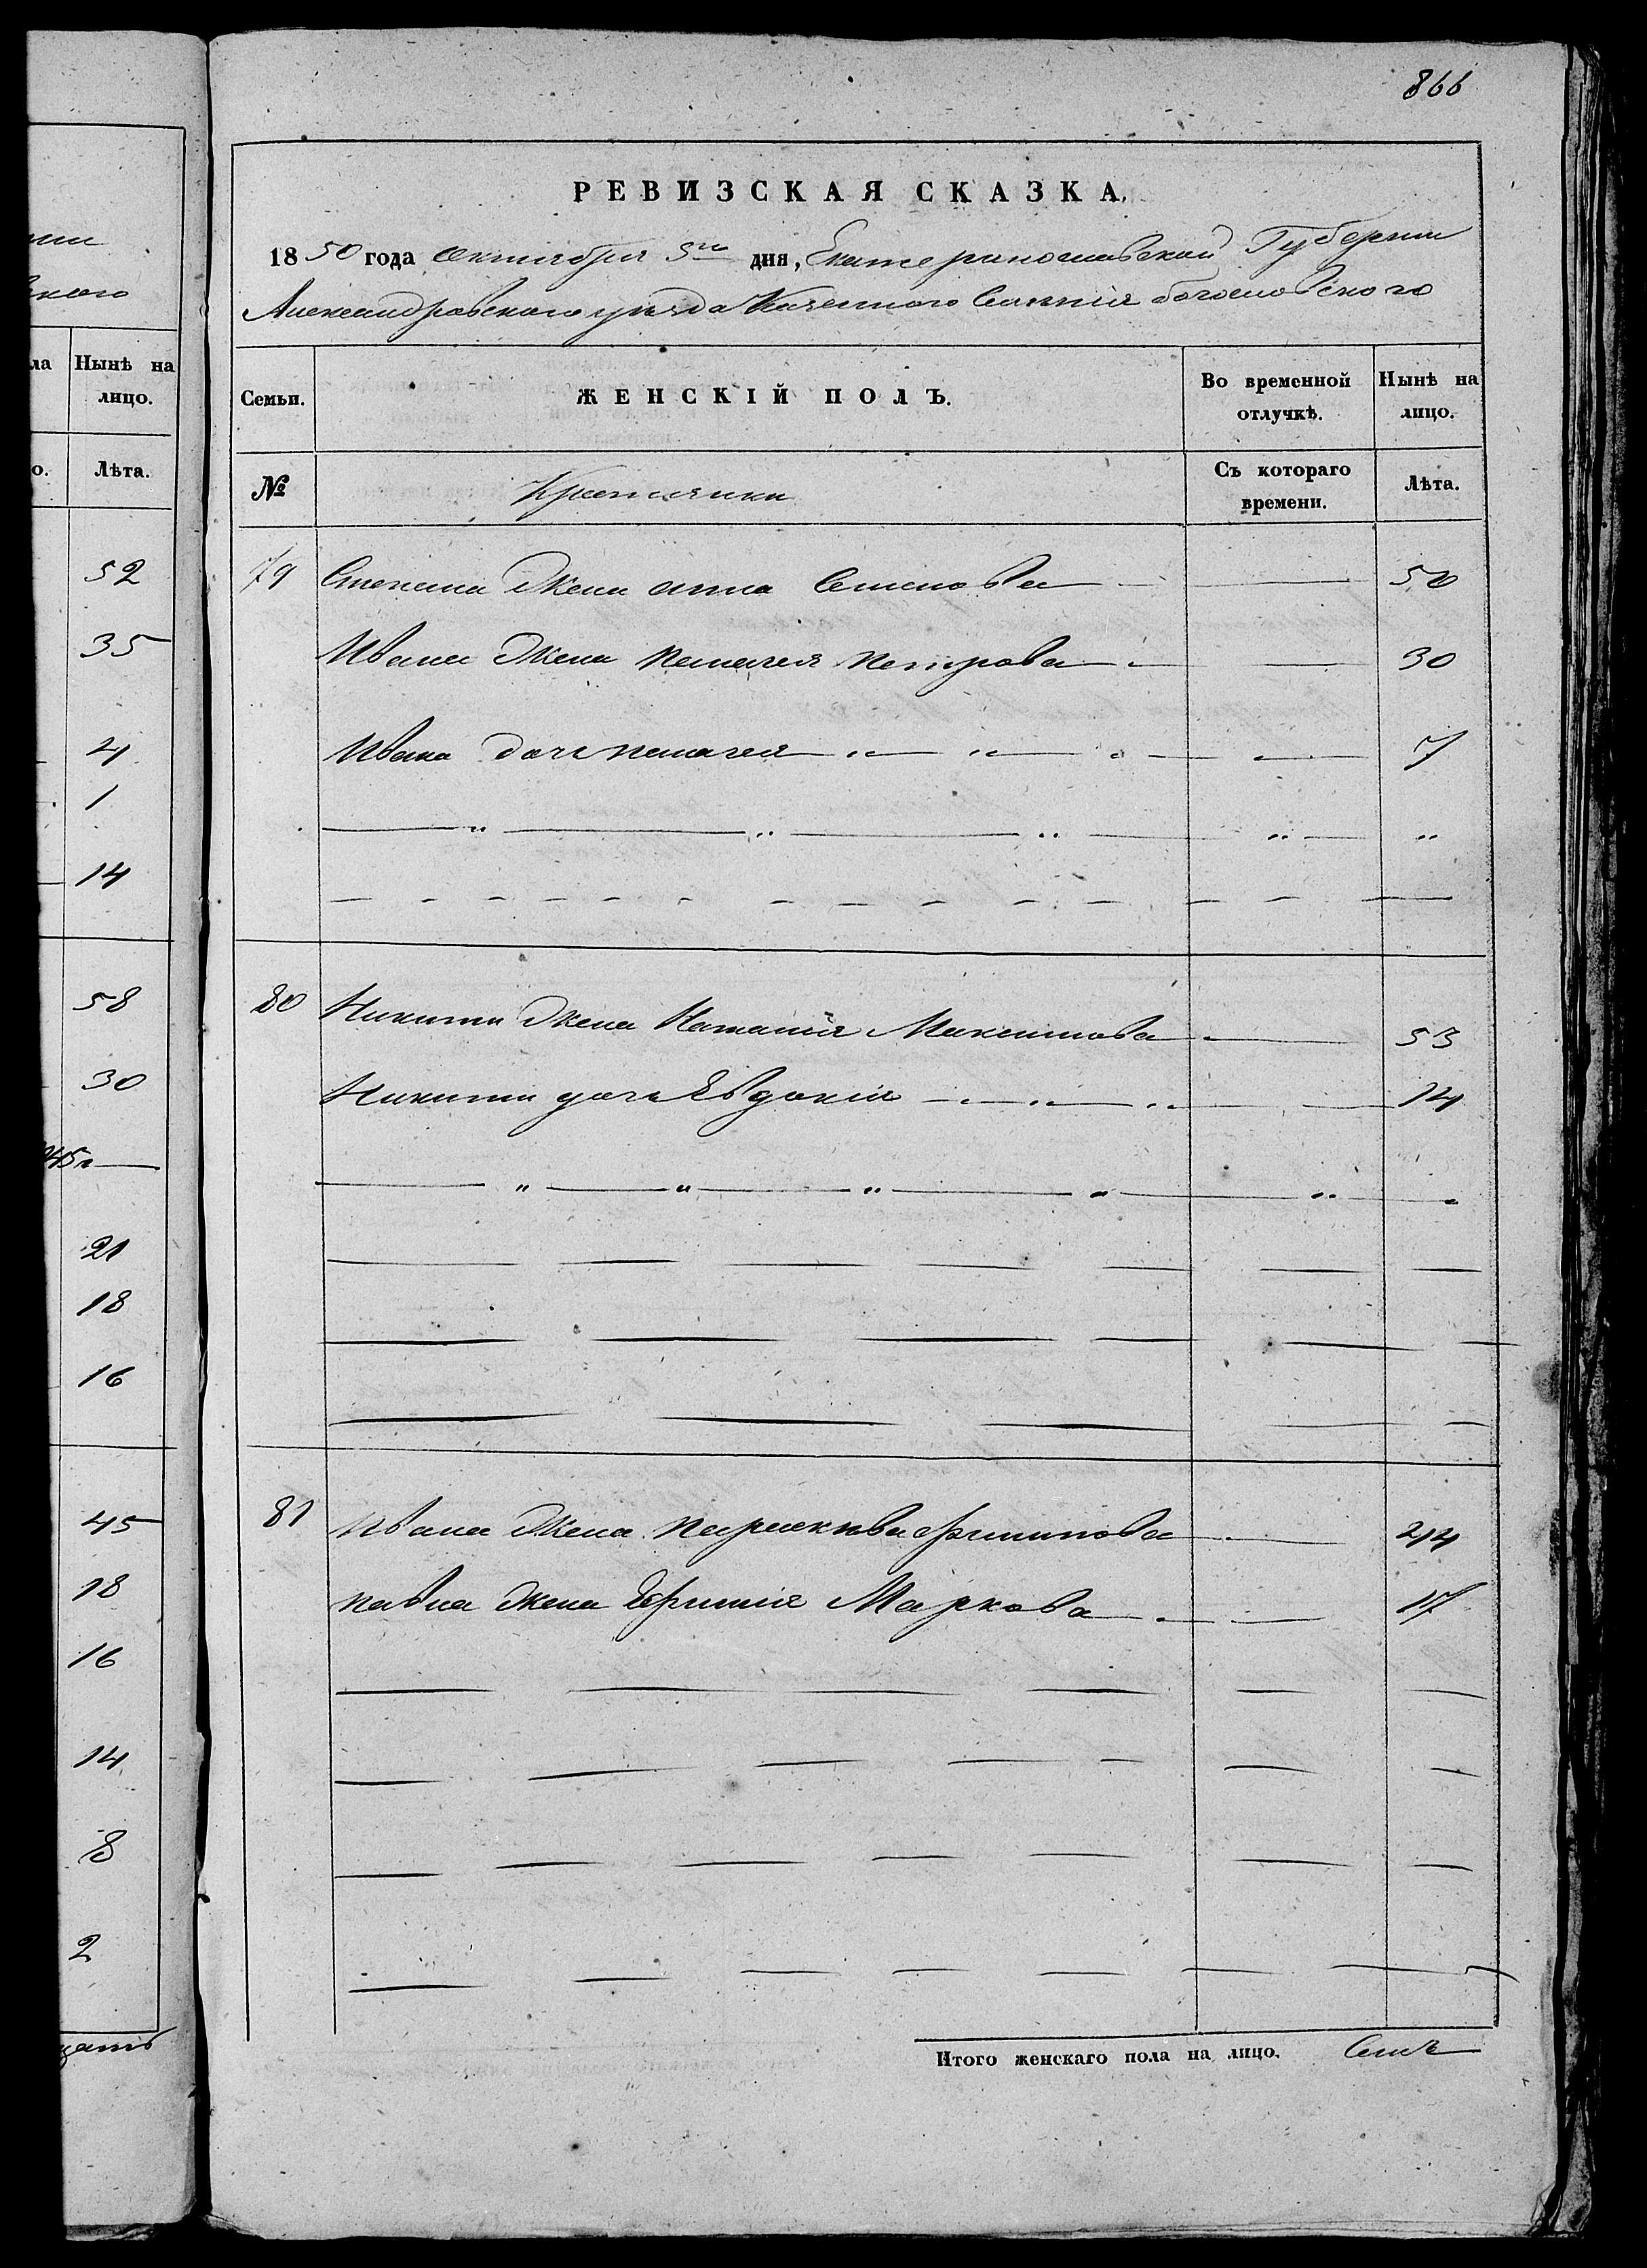 866
РЕВИЗСКАЯ СКАЗКА.
1850 года октября 5го дня, Екатеринославской Губернии
Александровского уезда Казенного Селения богословского
Семьи. ЖЕНСКІЙ ПОЛЪ. Во временной отлучкѣ. Нынѣ на лицо.
№ Крестьянки Съ котораго времени. Лѣта.
79 Степана жена анна Семенова 50
Ивана жена пелагея петрова 30
Ивана дочь пелагея 7
80 Никиты жена Наталия Максимова 53
Никиты дочь Евдокія 14
81 Ивана жена параскева филипова 44
павла жена Ефимия Маркова 17
Итого женскаго пола на лицо. Семь
Нынѣ на
лицо.
Лѣта.
52
35
4
1
14
58
30
21
18
16
45
18
16
14
8
2